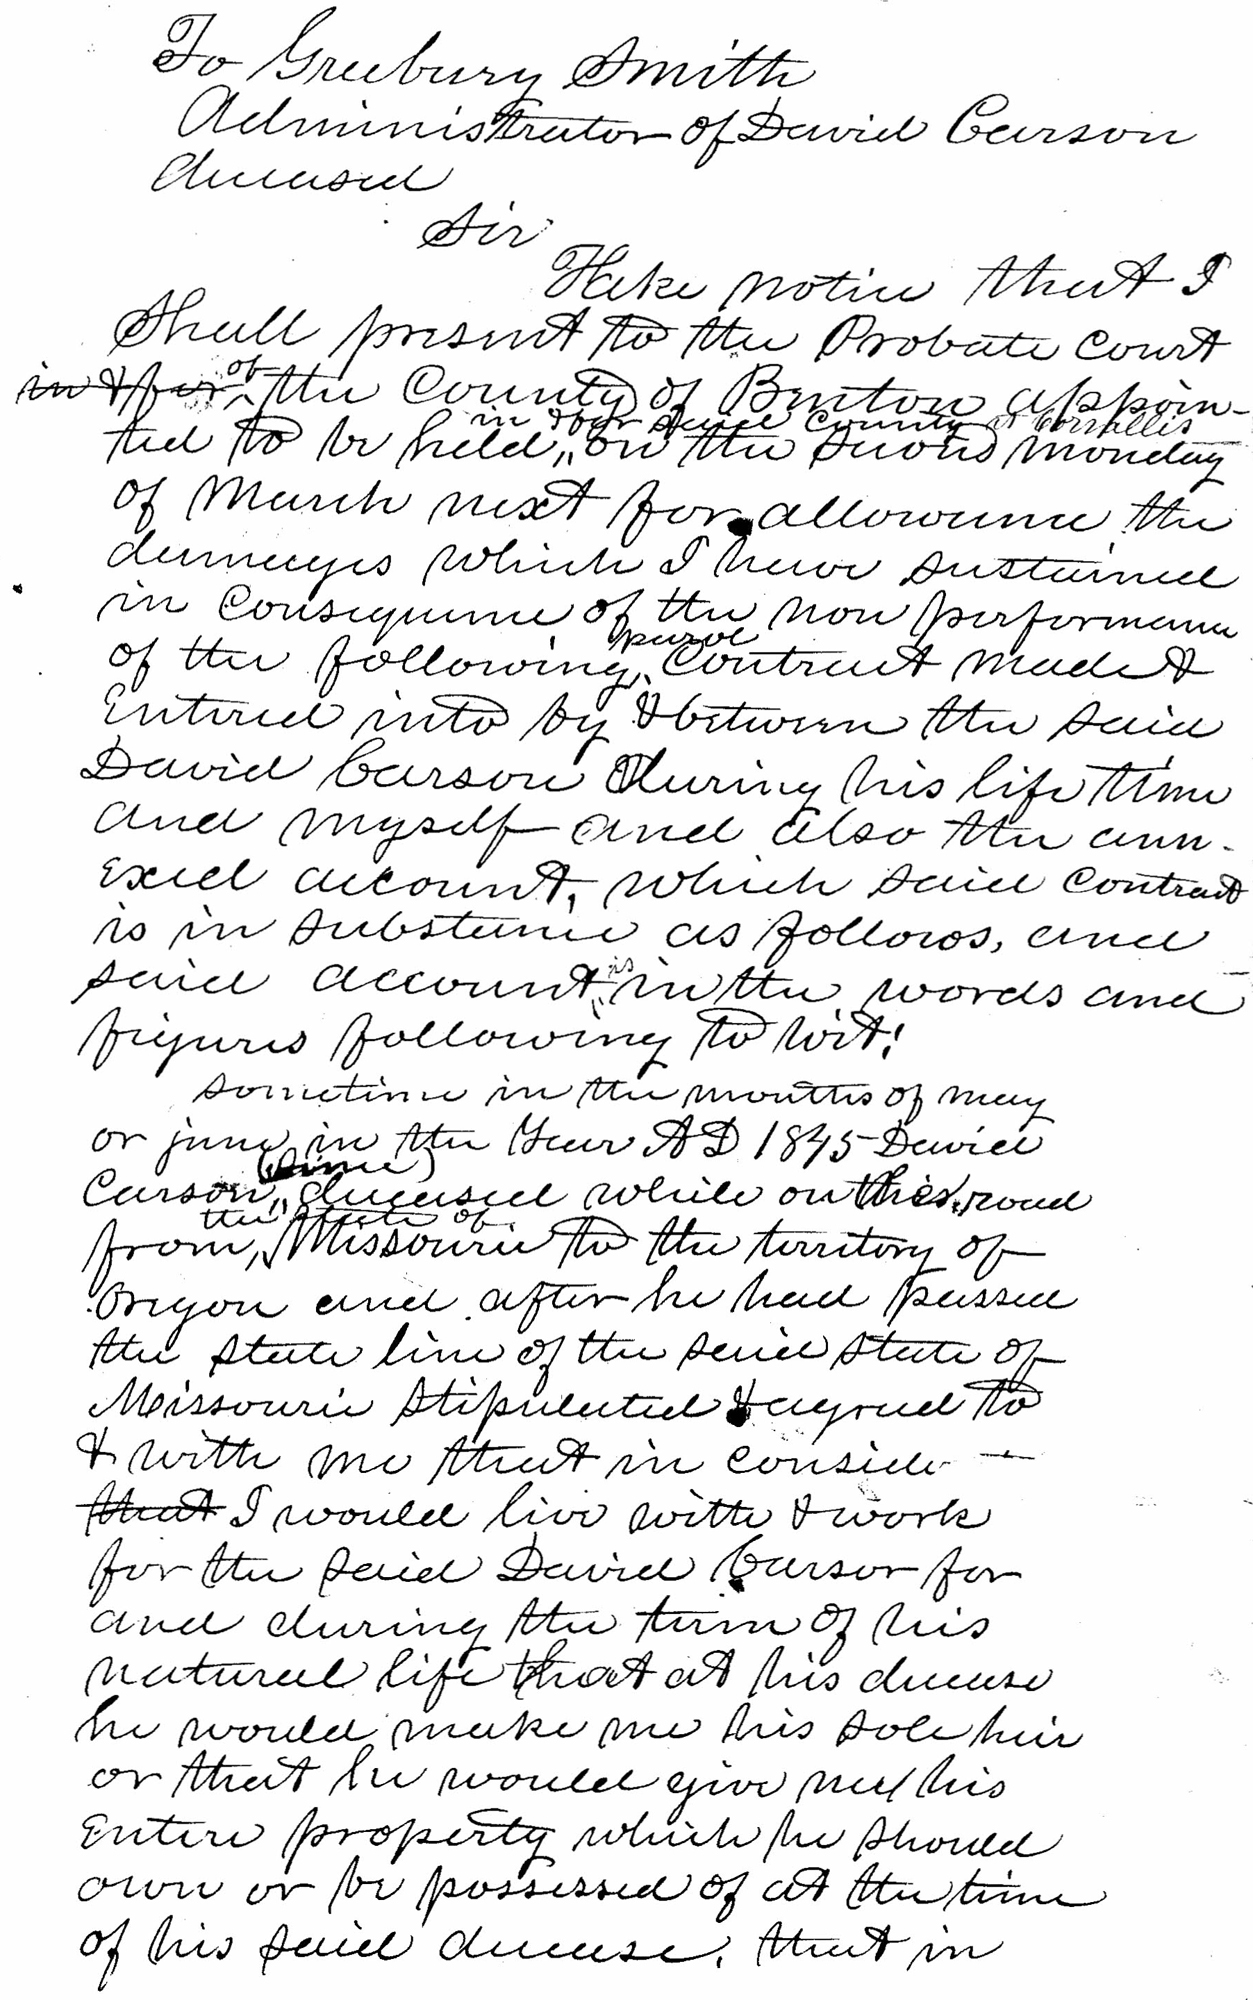 To Greebury Smith
Administrator of David Carson
deceased
Sir
Take notice that I
Shall present to the Probate Court
in & for of the County of Benton appoin-
in & for said County at Corvallis
ted to be held, on the second monday
of March next for allowance the
damages which I have sustained
in Consequence of the non performance
parol
of the following Contract made &
Entered into by & between the said
David Carson during his life time
and myself and also the ann-
exed account, which said contract
is in substance as follows, and
is
said account in the words and
figures following to wit!
sometime in the months of may
or june in the Year AD 1845 David
(since)
Carson, deceased while on the road
the State of
from, Missourie to the territory of
Oregon and after he had passed
the state line of the said state of
Missourie stipulated & agreed to
& with me that in conside
that I would live with & work
for the said David Carson for
and during the term of his
natural life that at his decease
he would make me his sole heir
or that he would give me his
Entire property which he should
own or be possessed of at the time
of his said decease, that in